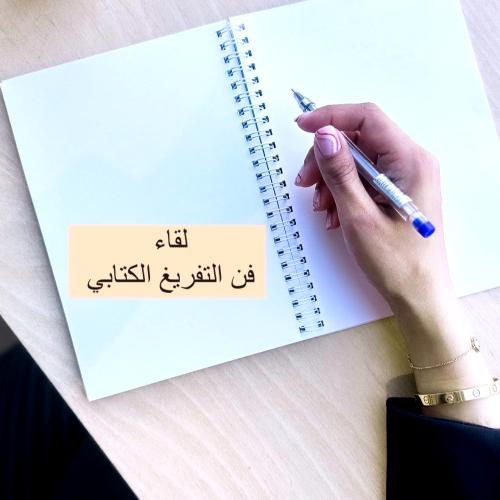 لقاء
فن التفريغ الكتابي